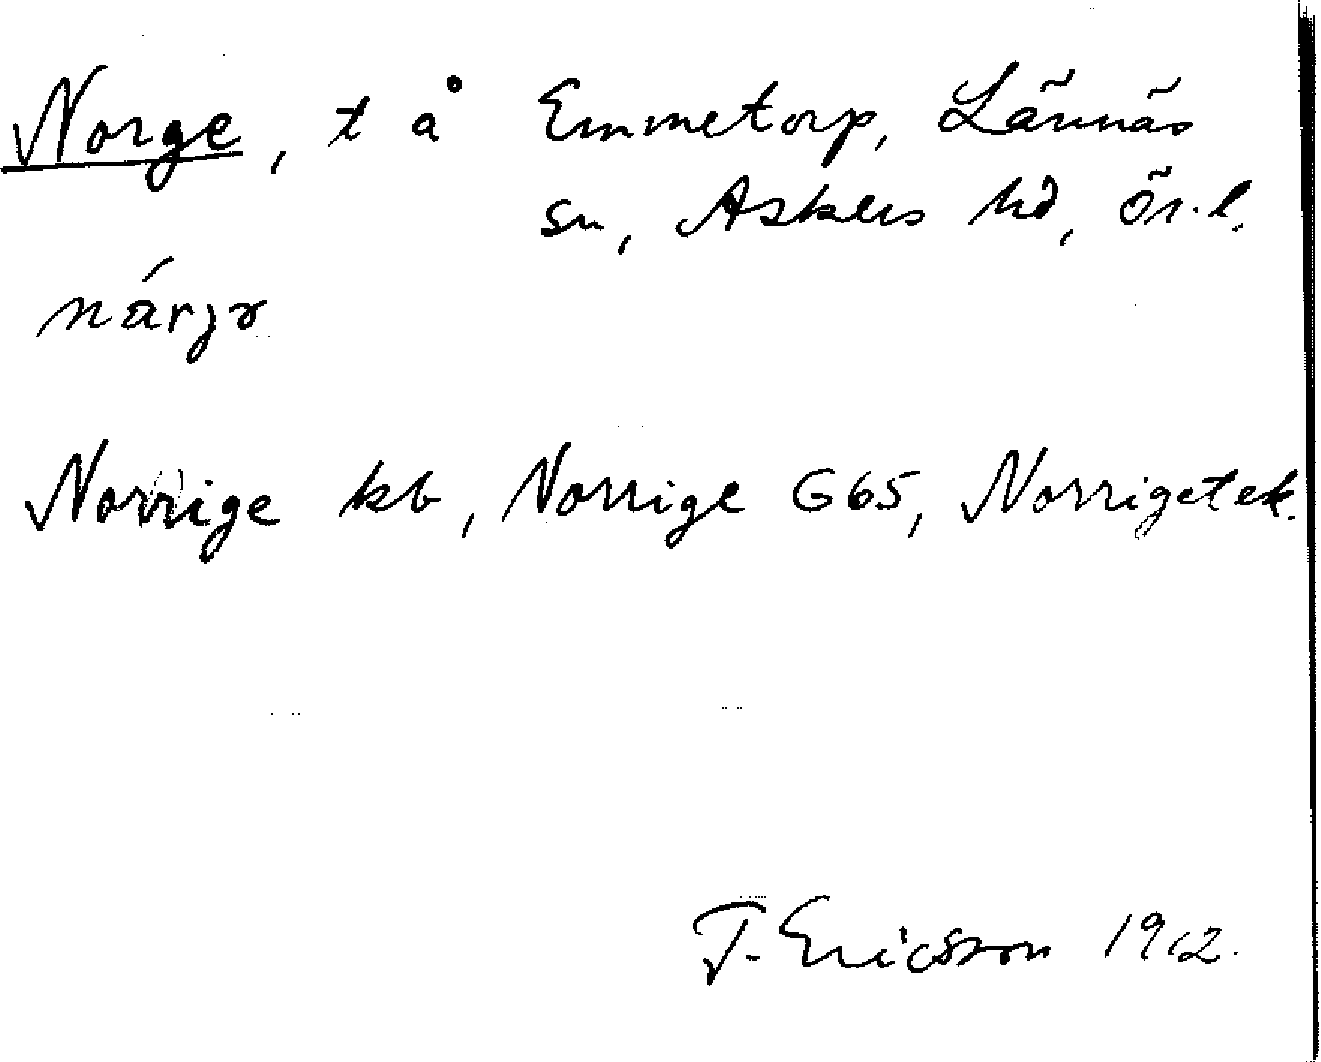 Norge, t å Emmetorp, Lännäs
sn, Askers hd, Ör. l.
nárjɤ
Norrige kb, Norrige G65, Norrigetek.
T. Ericsson 1962.